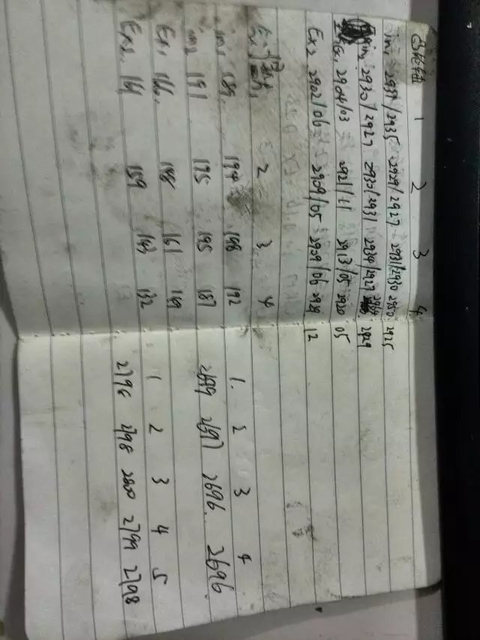 1 2 3 4
in1: 2934/2935 2929/2927 2931/2930 2930 2925
in2 2930/2927 2930/2931 2934/2927 2929
2904/03 2921/11 2913/05 2920 05
Ex2 2902/06 2909/05 2909/06 2929 12
2 3 4
in1 189 194 188 192
in2 191 195 195 187
Ex1 166 168 161 169
Ex2 161 159 143 132
1. 2 3 4
2699 2697 2696. 2696
1 2 3 4 5
2796 2798 2800 2799 2798